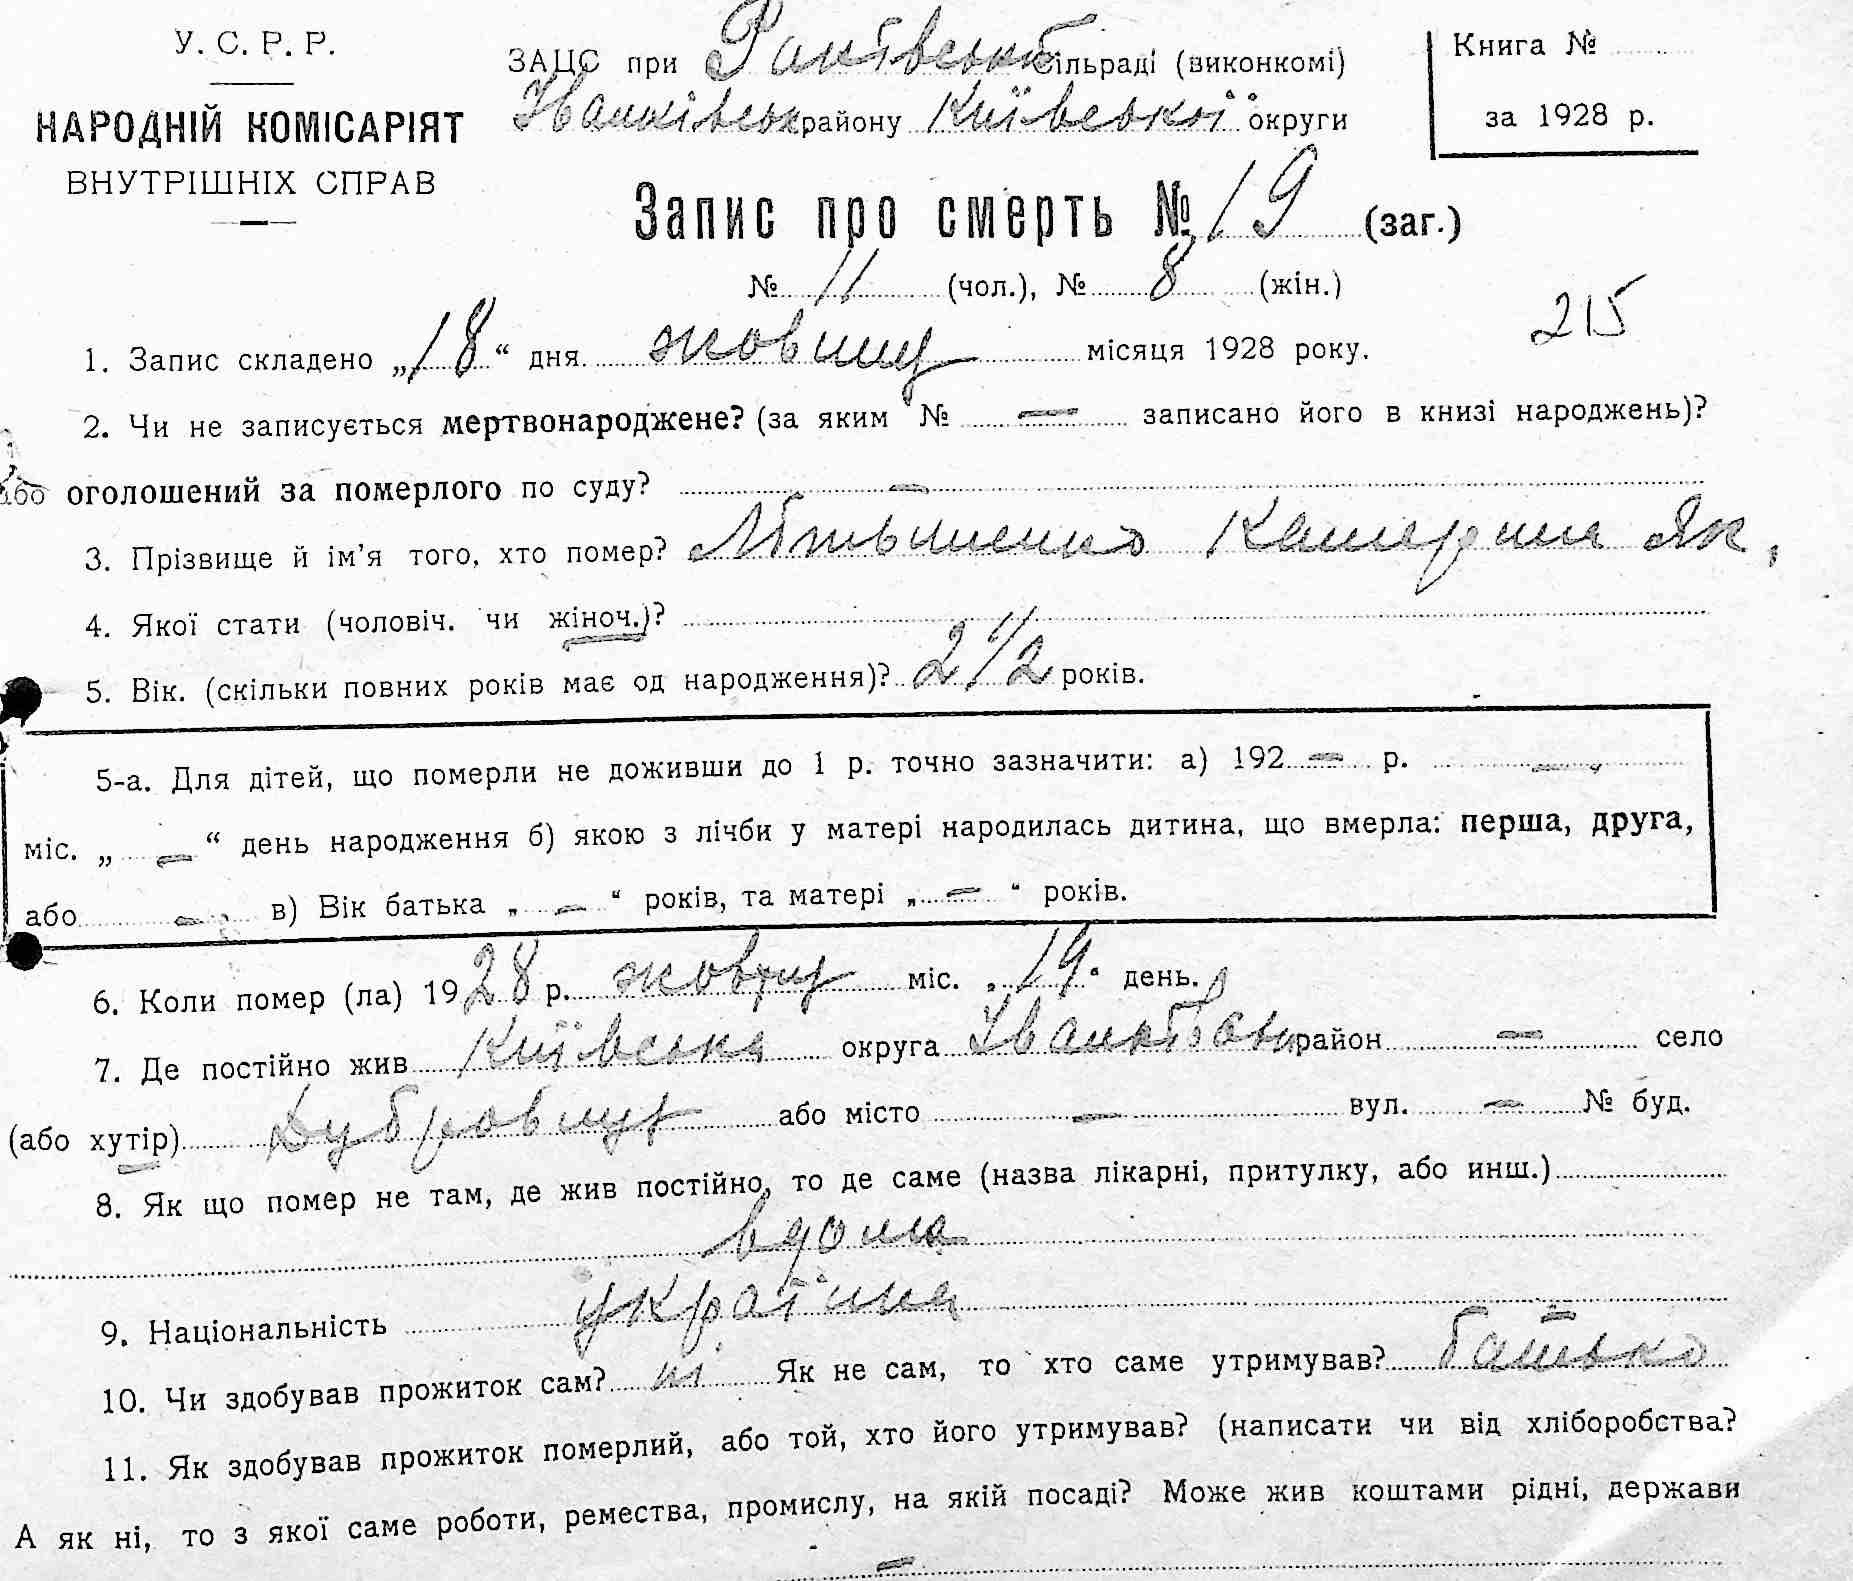 У. С. Р. Р.
НАРОДНІЙ КОМІСАРІЯТ
ВНУТРІШНІХ СПРАВ
ЗАЦС при сільраді (виконкомі)
Іванківськ району Київської округи
Книга №
за 1928 р.
Запис про смерть № 19 (заг.)
№ 11 (чол.), № 8 (жін.)
215
1. Запис складено „18“ дня жовтня місяця 1928 року.
2. Чи не записується мертвонароджене? (за яким № — записано його в книзі народжень)?
або оголошений за померлого по суду? —
3. Прізвище й ім'я того, хто помер? Катерина Як.
4. Якої стати (чоловіч. чи жіноч.)?
5. Вік. (скільки повних років має од народження)? 2 1/2 років.
5-а. Для дітей, що померли не доживши до 1 р. точно зазначити: а) 192 — р. —
міс. „ — “ день народження б) якою з лічби у матері народилась дитина, що вмерла: перша, друга,
або — в) Вік батька „ — “ років, та матері „ — “ років.
6. Коли помер (ла) 1928 р. жовтня міс. день.
7. Де постійно жив Київська округа район — село
(або хутір) або місто — вул. — № буд.
8. Як що помер не там, де жив постійно, то де саме (назва лікарні, притулку, або инш.)
вдома
9. Національність україна
10. Чи здобував прожиток сам? ні Як не сам, то хто саме утримував? батько
11. Як здобував прожиток померлий, або той, хто його утримував? (написати чи від хліборобства?
А як ні, то з якої саме роботи, ремества, промислу, на якій посаді? Може жив коштами рідні, держави
—